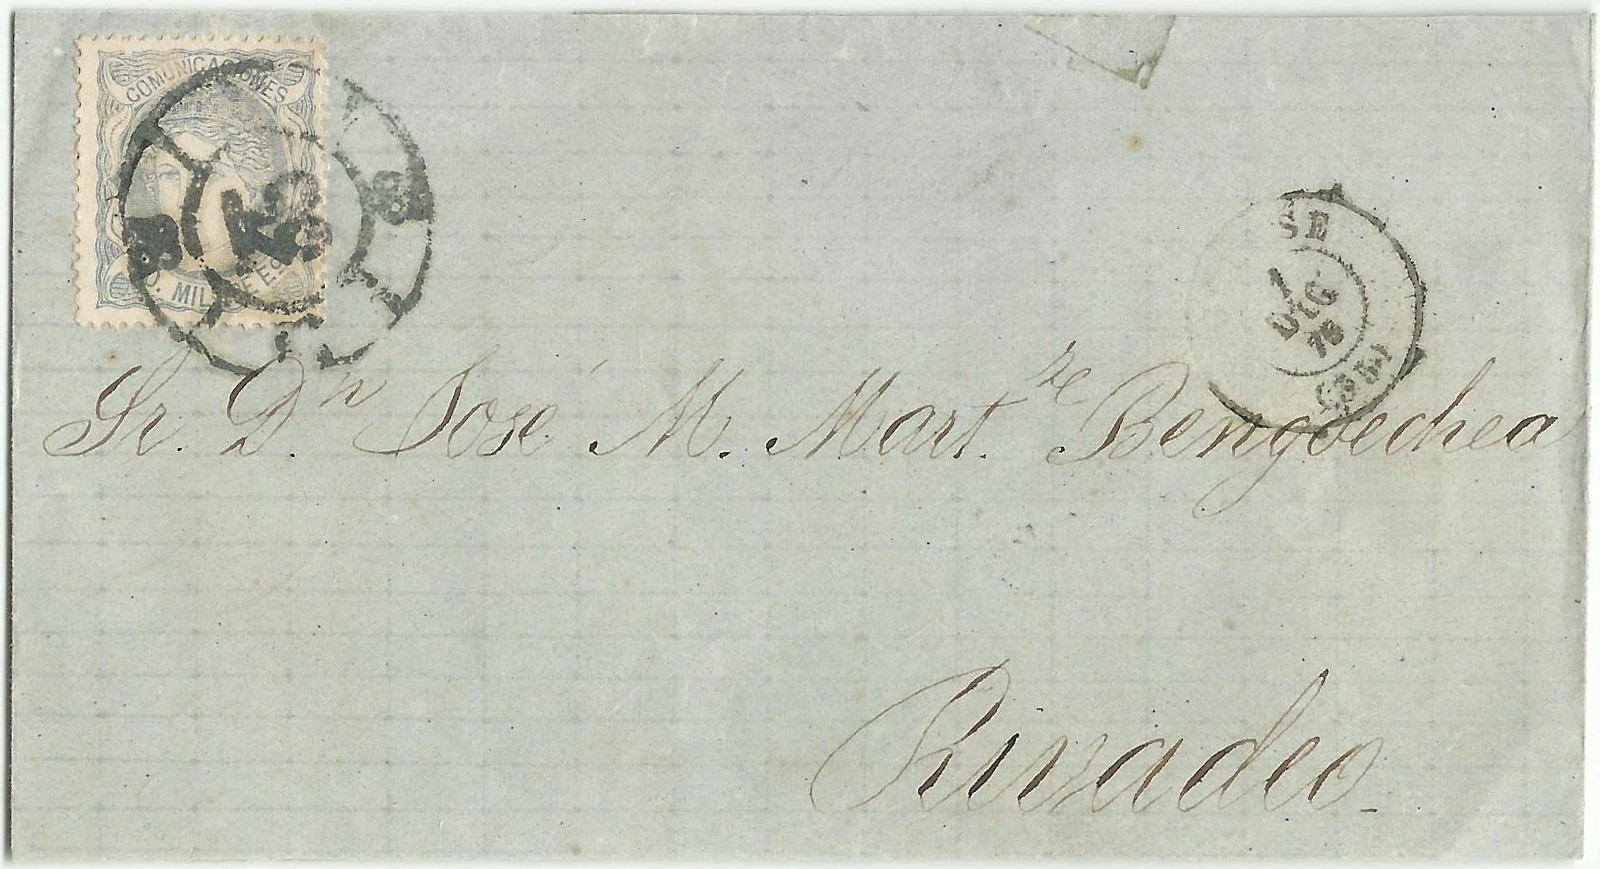 COMUNICACIONES
MIL
SE
1
DIC
Sr. Dn José M. Mart.ze Bengoechea
Rivadeo